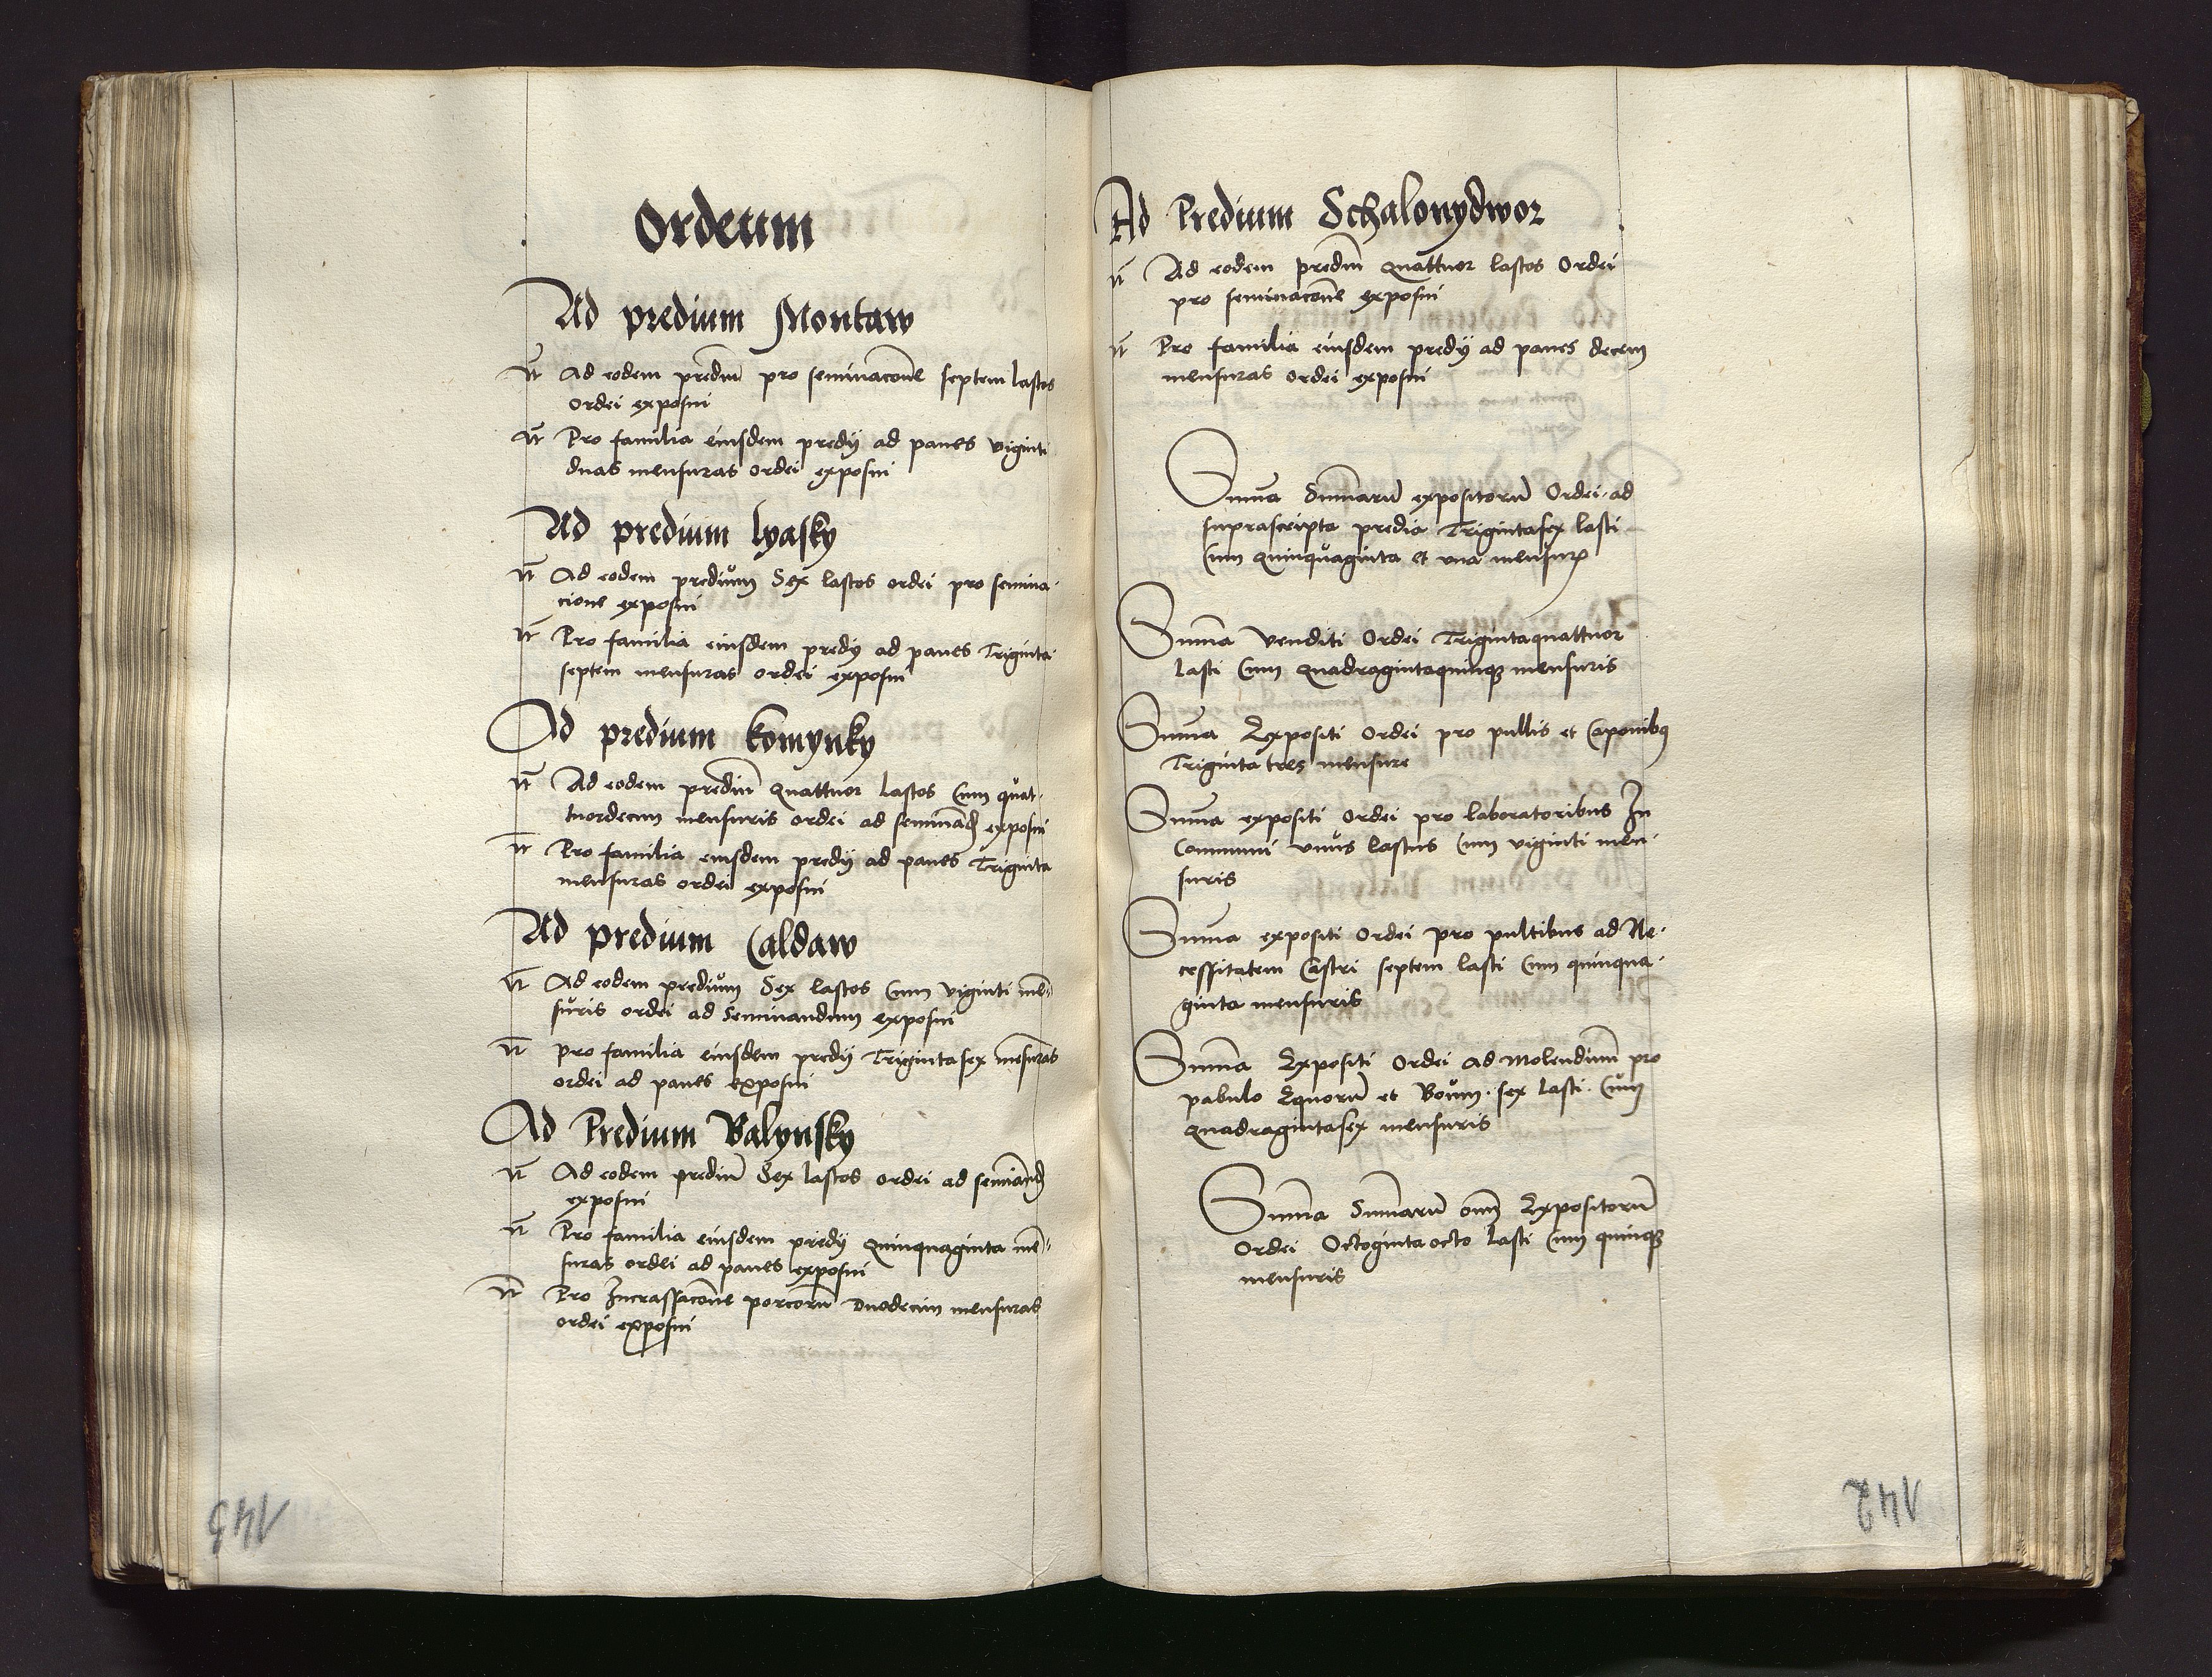 Ordeum
Ad predium Montaw
Ñ Ad eodem prediū pro seminacōne septem lastos
ordei exposui
Ñ Pro familia eiusdem predÿ ad panes viginti
duas mensuras ordei exposui
Ad predium lyasky
Ñ Ad eodem predium Sex lastos ordei pro semina-
cione exposui
Ñ Pro familia eiusdem predÿ ad panes Triginta
septem mensuras ordei exposui
Ad predium komynky
Ñ Ad eodem prediū Quattuor lastos Cum quat-
tuordecim mensuris ordei ad seminād exposui
Ñ Pro familia eiusdem predÿ ad panes Triginta
mensuras ordei exposui
Ad predium Caldaw
Ñ Ad eodem predium Sex lastos Cum viginti mē-
suris ordei ad Seminandum exposui
Ñ pro familia eiusdem predÿ Trigintasex mēsuras
ordei ad panes exposui
Ad Predium Balynsky
Ñ Ad eodem prediū Sex lastos ordei ad semiānd
exposui
Ñ Pro familia eiusdem predÿ Quinquaginta mē-
suras ordei ad panes exposui
Ñ Pro Incrassacōne porcorū Duodecim mensuras
ordei exposui
143
Ad Predium Schalonydwor
Ñ Ad eodem prediū Quattuor lastos Ordei
pro seminacōne exposui
Ñ Pro familia eiusdem predÿ ad panes decem
mensuras ordei exposui
Suma Sumarū expositorū Ordei ad
suprascripta predia Trigintasex lasti
Cum Quinquaginta et una mensur
Summa venditi Ordei Trigintaquattuor
lasti Cum Quadragintaquinqꝫ mensuris
Suma Expositi Ordei pro pullis et Caponibꝫ
Triginta tres mensure
Suma expositi Ordei pro laboratoribus In
Communi vnus lastus Cum viginti men
suris
Suma expositi Ordei pro pultibus ad Ne-
cessitatem Castri septem lasti Cum quinqua-
ginta mensuris
Summa Expositi Ordei ad Molendinū pro
pabulo Equorū et Boum sex lasti Cum
Quadragintasex mensuris
Summa Sumarū om̄ Expositorū
Ordei Octoginta octo lasti Cum quinqꝫ
mensuris
142